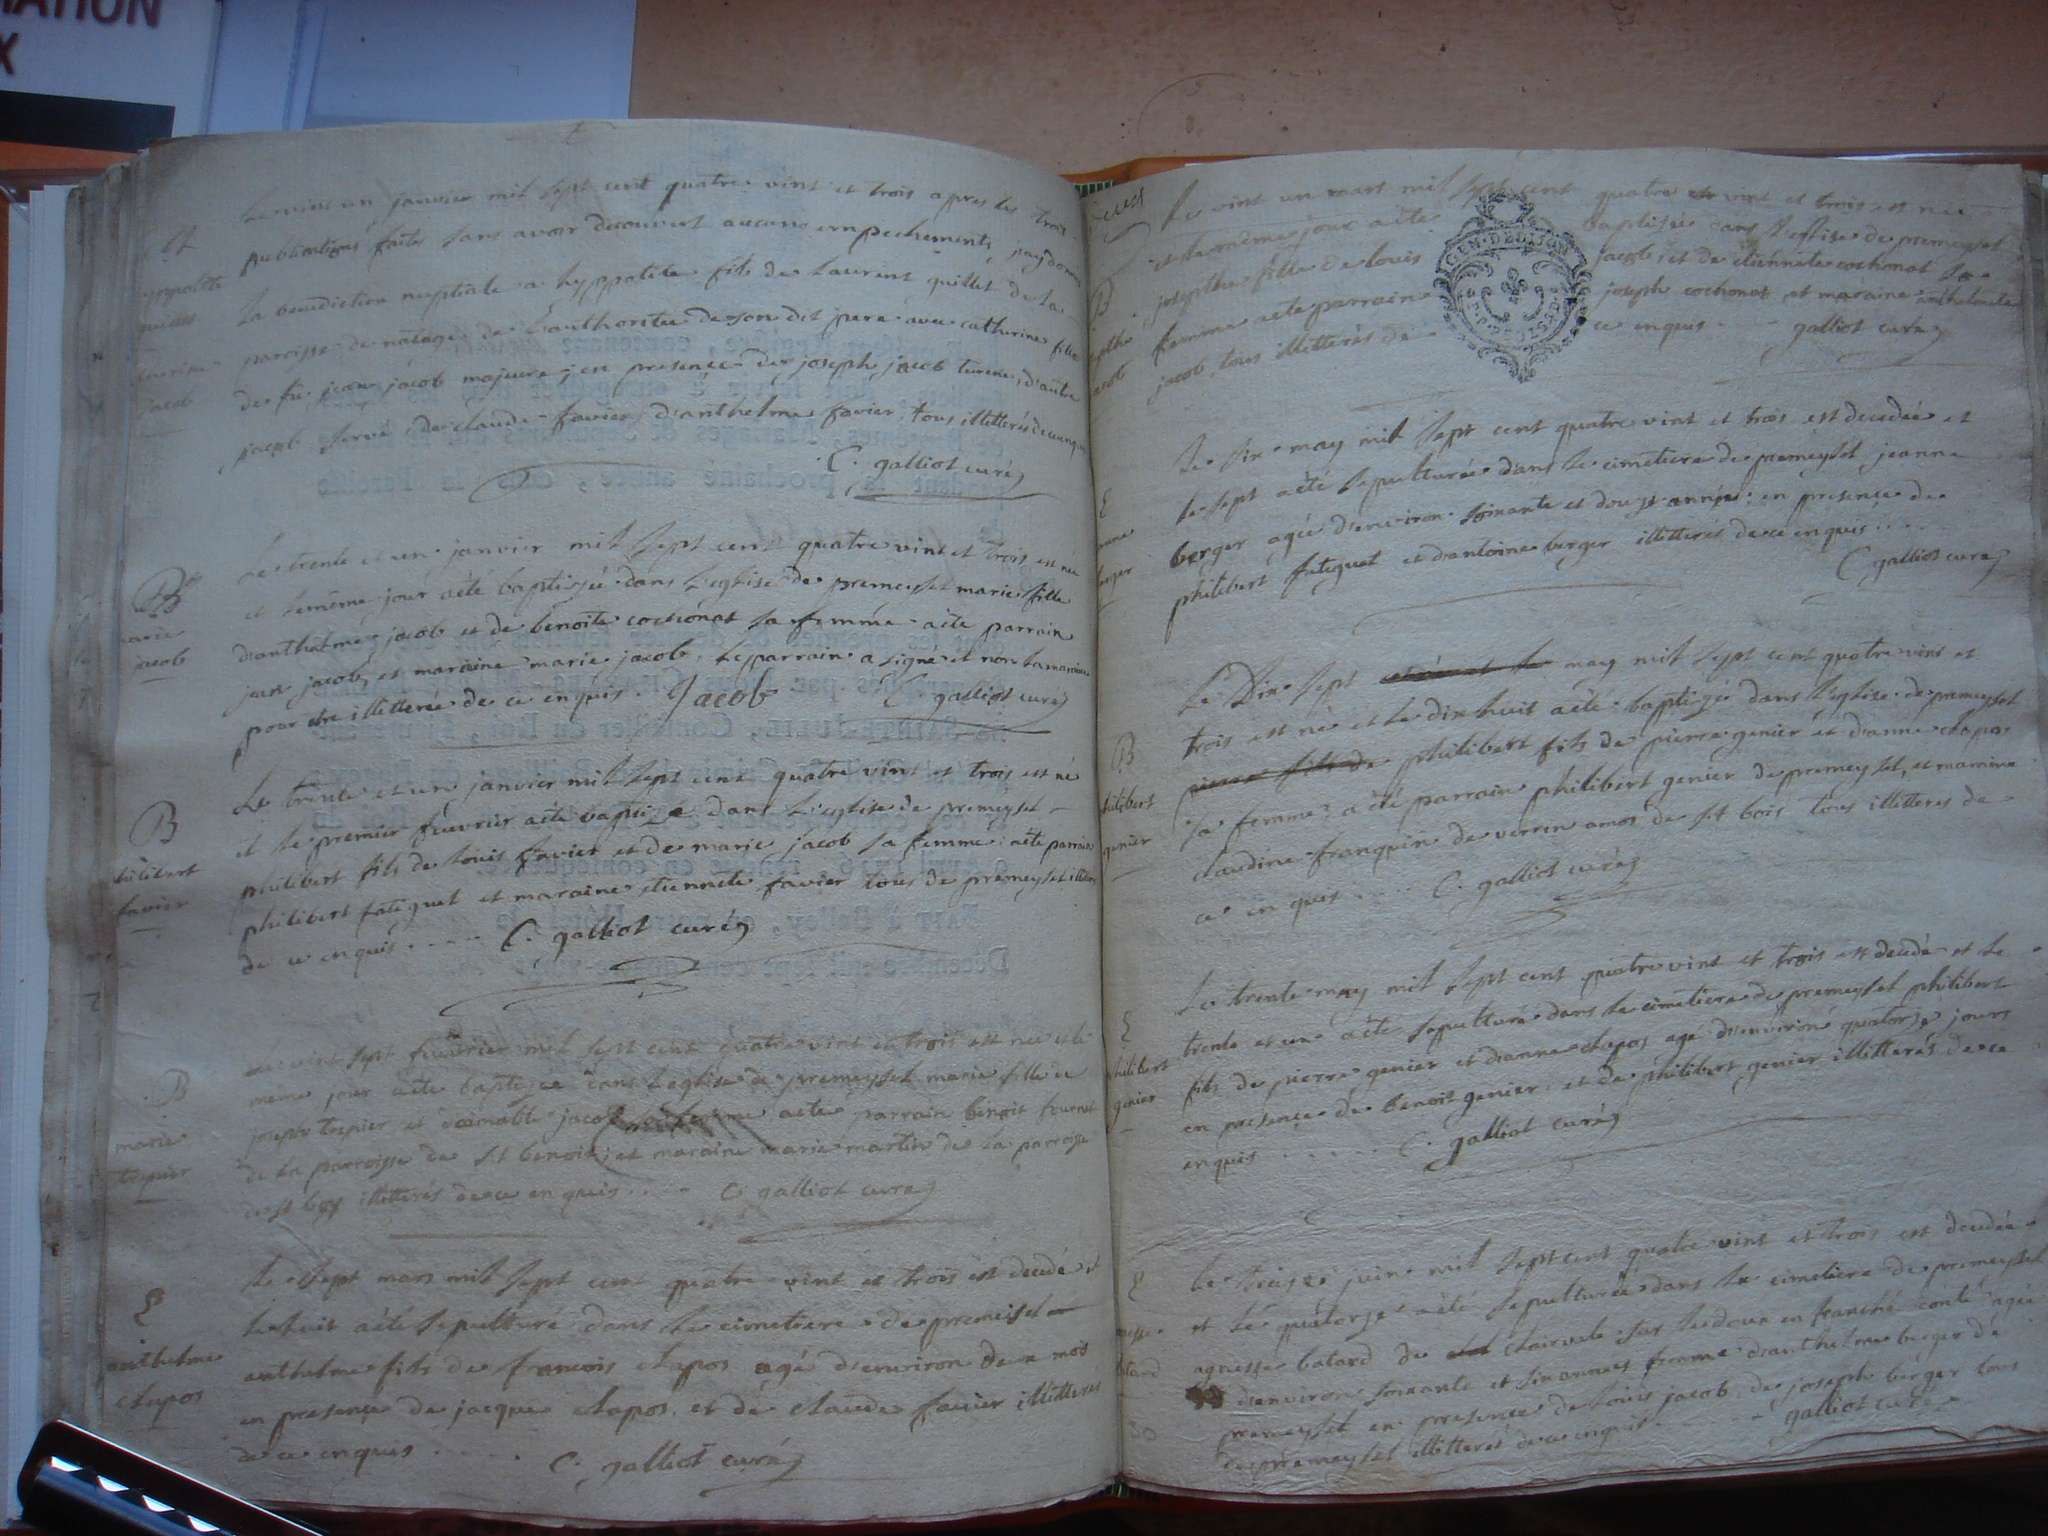 MATION
X
Le vint un janvier mil sept cent quatre vint et trois apres les trois
publications faites sans avoir decouvert aucuns empechements jay donné
La benediction nuptiale a hyppolite fils de Laurent quillet de la
paroisse de natage de L'authoritee de son dit pere avec catherine fille
de fu jean jacob majeure, en presence de joseph jacob d'autre
jacob de claude favier, d'anthelme favier, tous illitterés de ce enquis
C. galliot curé
hyppolite
quillet
jacob
Le trente et un janvier mil sept cent quatre vint et trois est née
et le même jour a été baptisée dans L'eglise de premeysel marie fille
d'anthelme jacob et de benoite cochonat sa femme a été parrain
jean jacob et maraine marie jacob, Le parrain a signé et non la maraine
pour être illitterée de ce enquis. Jacob C galliot curé
B
marie
jacob
Le trente et un janvier mil sept cent quatre vint et trois est né
et le premier fevrier a été baptisé dans L'eglise de premeysel
philibert fils de Louis favier et de marie jacob sa femme a été parrain
philibert fatequet et maraine etiennete favier tous de premeysel illitterés
de ce enquis C. galliot curé
B
philibert
favier
Le vint sept fevrier mil sept cent quatre vint et trois est née et le
meme jour a été baptisée dans L'eglise de premeysel marie fille de
joseph trepier et jacob sa femme a été parrain benoit
de la parroisse de st benoit, et maraine marie martin de La parroisse
de st illitterés de ce enquis C galliot curé
B
marie
trepier
Le sept mars mil sept cent quatre vint et trois est decedé et
le huit a été sepulturé dans Le cimetiere de premeisel
anthelme fils de francois chapos agé d'environ deux mois
en presence de jacque chapos et de claude favier illitteres
de ce enquis C. galliot curé
anthelme
chapos
Le vint un mart mil sept cent quatre vint et trois est née
et le même jour a été baptisée dans L'eglise de premeysel
josephe fille de Louis jacob, et de etiennete cochonat sa
femme a été parrain joseph cochonat et maraine anthelmete
jacob, tous illitterés de ce enquis galliot curé
GEN. DE DIJON
B
jacob
Le six may mil sept cent quatre vint et trois est decedée et
le sept a été sepulturée dans Le cimetiere de premeysel jeanne
berger agée d'environ soixante et douze années en presence de
philibert fatequet et d'antoine berger illitterés de ce enquis
C galliot curé
berger
Le Dix sept may mil sept cent quatre vint et
trois est né et Le dix huit a été baptizé dans L'eglise de premeysel
pierre fils de philibert fils de pierre genier et d'anne chapos
sa femme a été parrain philibert genier de premeysel, et maraine
claudine franquin de verren amos de st bois tous illitteres de
ce enquis C. galliot curé
B
philibert
genier
Le trente may mil sept cent quatre vint et trois est decedé et Le
trente et un a été sepulturé dans Le cimetiere de premeysel philibert
fils de pierre genier et d'anne chapos agé d'environ quatorze jours
en presence de benoit genier et de philibert genier illitterés de ce
enquis C. galliot curé
philibert
genier
Le treize juin mil sept cent quatre vint et trois est decedée
et Le quatorze a été sepulturée dans Le cimetiere de premeysel
batard de clairvale sur Le doux en franche conté agée
d'environ soixante et six années femme d'anthelme berger de
premeysel en presence de Louis jacob, de joseph berger tous
de premeysel illitterés de ce enquis galliot curé
batard